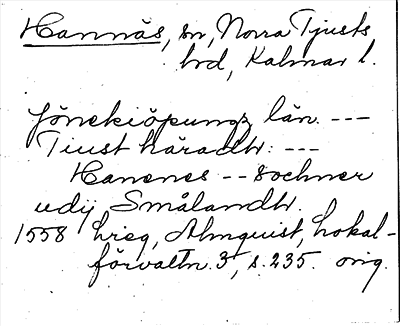 Hannäs, sn, Norra Tjusts
hd, Kalmar l.
Jönekiöpungz län. ---
Tiust häradtr: ---
Hanenes -- sochner
udij Smålandtr.
1558 hreg, Almquist, Lokal-
förvaltn. 3, s. 235. orig.